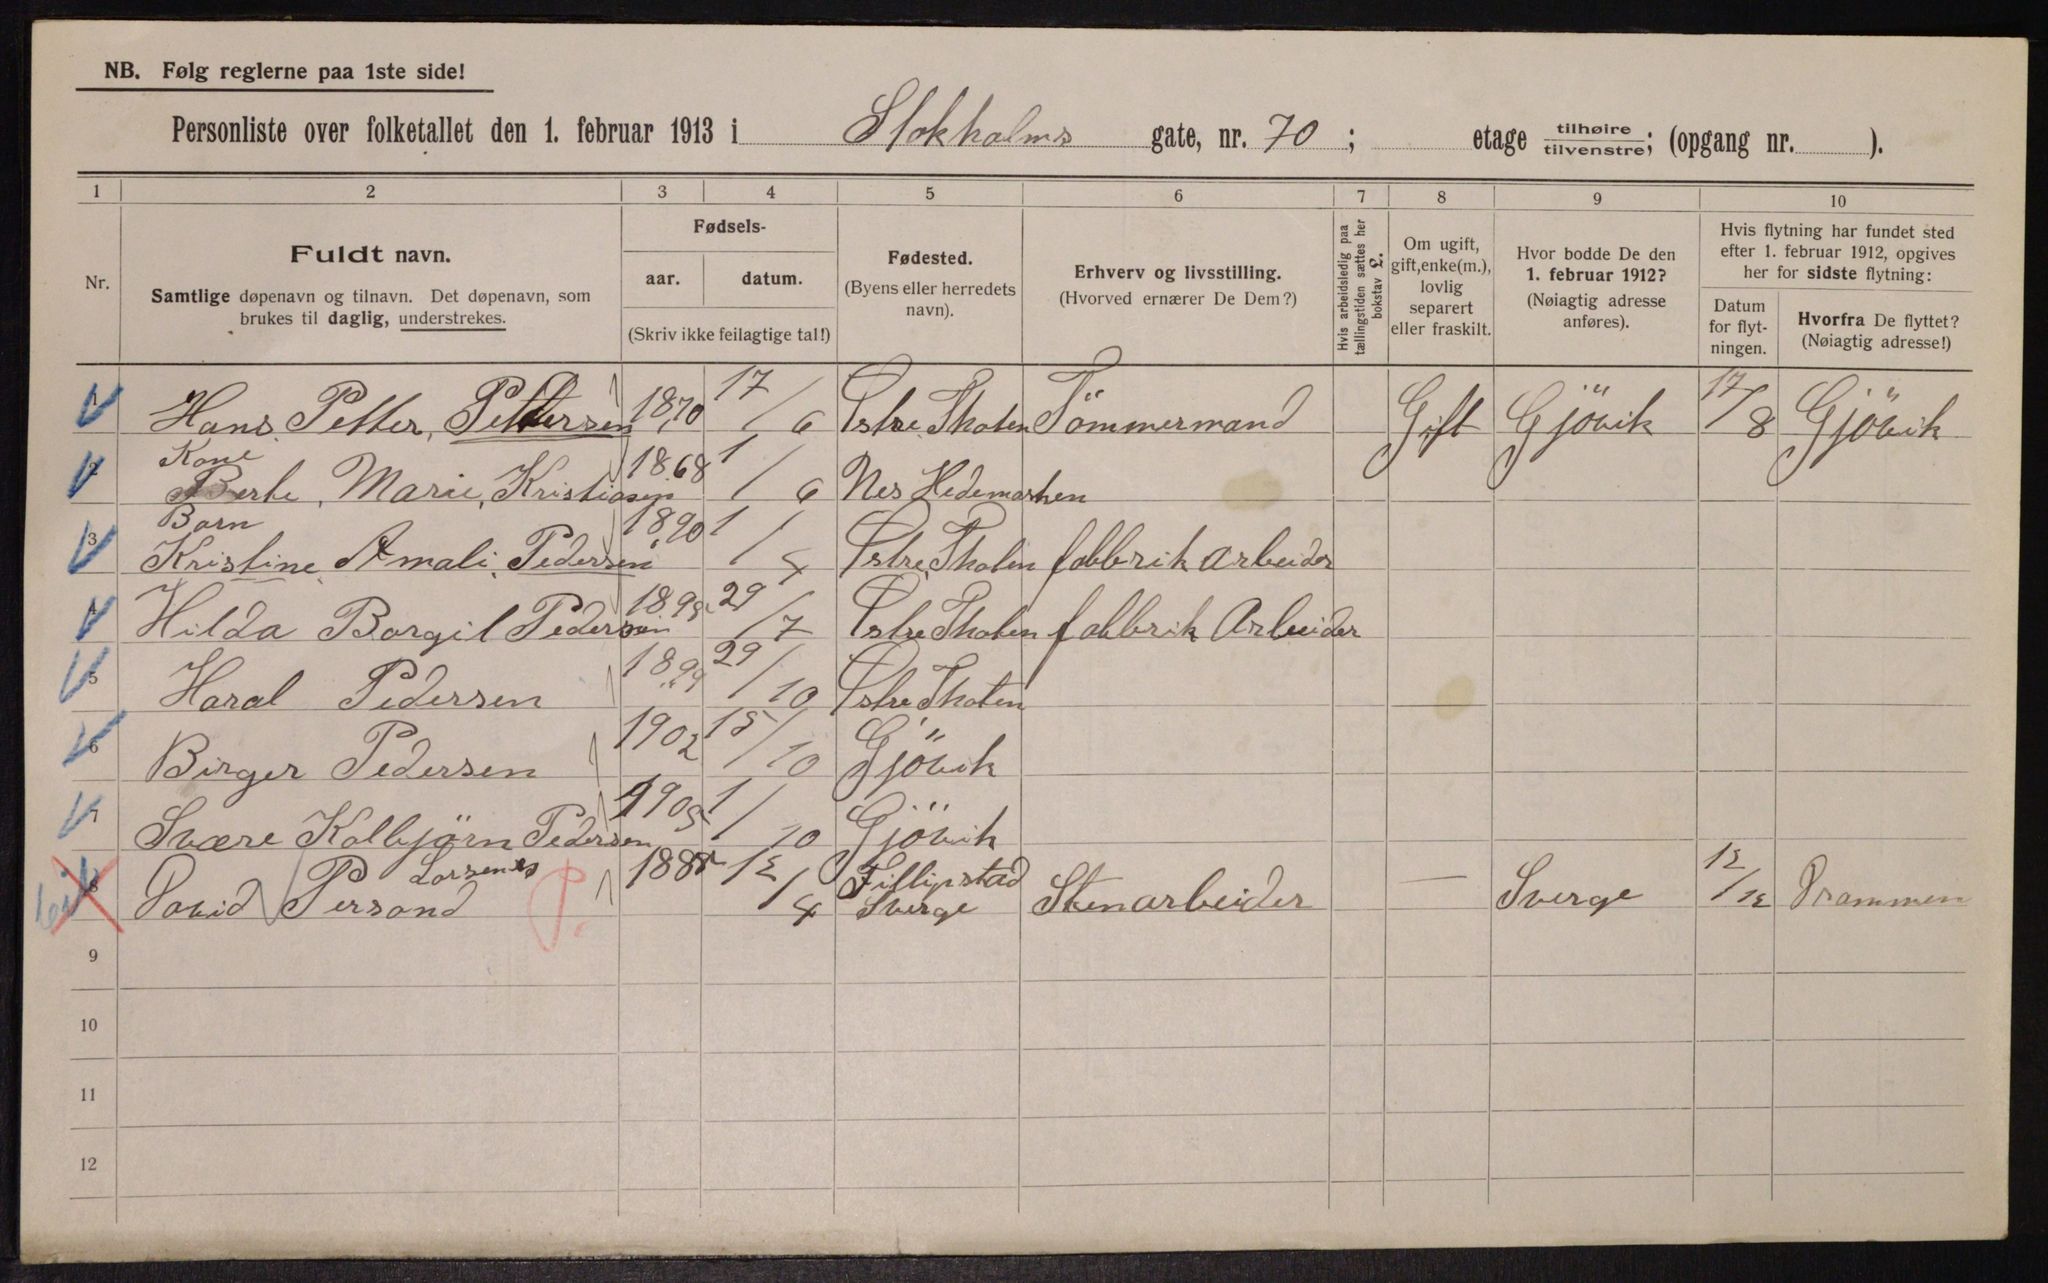 NB. Følg reglerne paa 1ste side!
Personliste over folketallet den 1. februar 1913 i Stokholms gate, nr. 70; etage tilhøire tilvenstre; (opgang nr. ).
1 2 3 4 5 6 7 8 9 10
Nr.
Fuldt navn.
Samtlige døpenavn og tilnavn. Det døpenavn, som
brukes til daglig, understrekes.
Fødsels-
aar. datum.
(Skriv ikke feilagtige tal!)
Fødested.
(Byens eller herredets
navn).
Erhverv og livsstilling.
(Hvorved ernærer De Dem?)
Hvis arbeidsledig paa
tællingstiden sættes her
bokstav L.
Om ugift,
gift, enke(m.),
lovlig
separert
eller fraskilt.
Hvor bodde De den
1. februar 1912?
(Nøiagtig adresse
anføres).
Hvis flytning har fundet sted
efter 1. februar 1912, opgives
her for sidste flytning:
Datum
for flyt-
ningen.
Hvorfra De flyttet?
(Nøiagtig adresse!)
1 Hans Petter Pettersen 1870 17/6 Østre Thoten Tömmermand Gift Gjövik 17/8 Gjövik
Kone
2 Berte Marie Kristiasen 1868 1/6 Nes Hedemarken
Barn
3 Kristine Amali Pedersen 1890 1/4 Østre Thoten fabbrik arbeider
4 Hilda Borgil Pedersen 1895 29/7 Østre Thoten fabbrik Arbeider
5 Haral Pedersen 1899 29/10 Østre Thoten
6 Birger Pedersen 1902 15/10 Gjövik
7 Svære Kolbjörn Pedersen 1905 1/10 Gjövik
Larsenes
8 David Persond P. 188 12/4 Fillipstad Sverge Stenarbeider — Sverge 12/12 Drammen
9
10
11
12